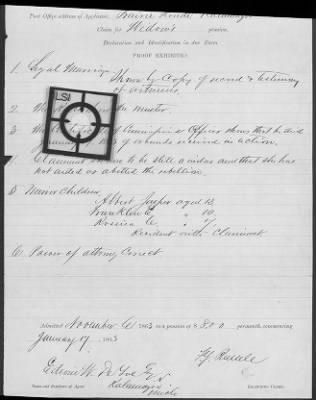 Post Office address of Applicant, Prairie Ronde, Kalamazoo
Claim for Widow's pension.
Declaration and Identification in due Form.
PROOF EXHIBITED:
1 Legal Marriage
Shown by Copy of record & testimony
of witnesses.
2 the muster.
LSI
3 Officer shows that he died
of wounds received in action.
4 Claimant to be still a widow and that she has
not aided or abetted the rebellion.
5 Minor Children
Albert Jasper aged 13
Franklin E. " 10
" 7
Resident with Claimant
6 Power of attorney Correct
Admitted November 6 1863 to a pension of $ 8.00 per month, commencing
January 17, 1863
Edwin W. De Yoe Esq
Kalamazoo
Mich
Name and Residence of Agent.
Examining Clerk.